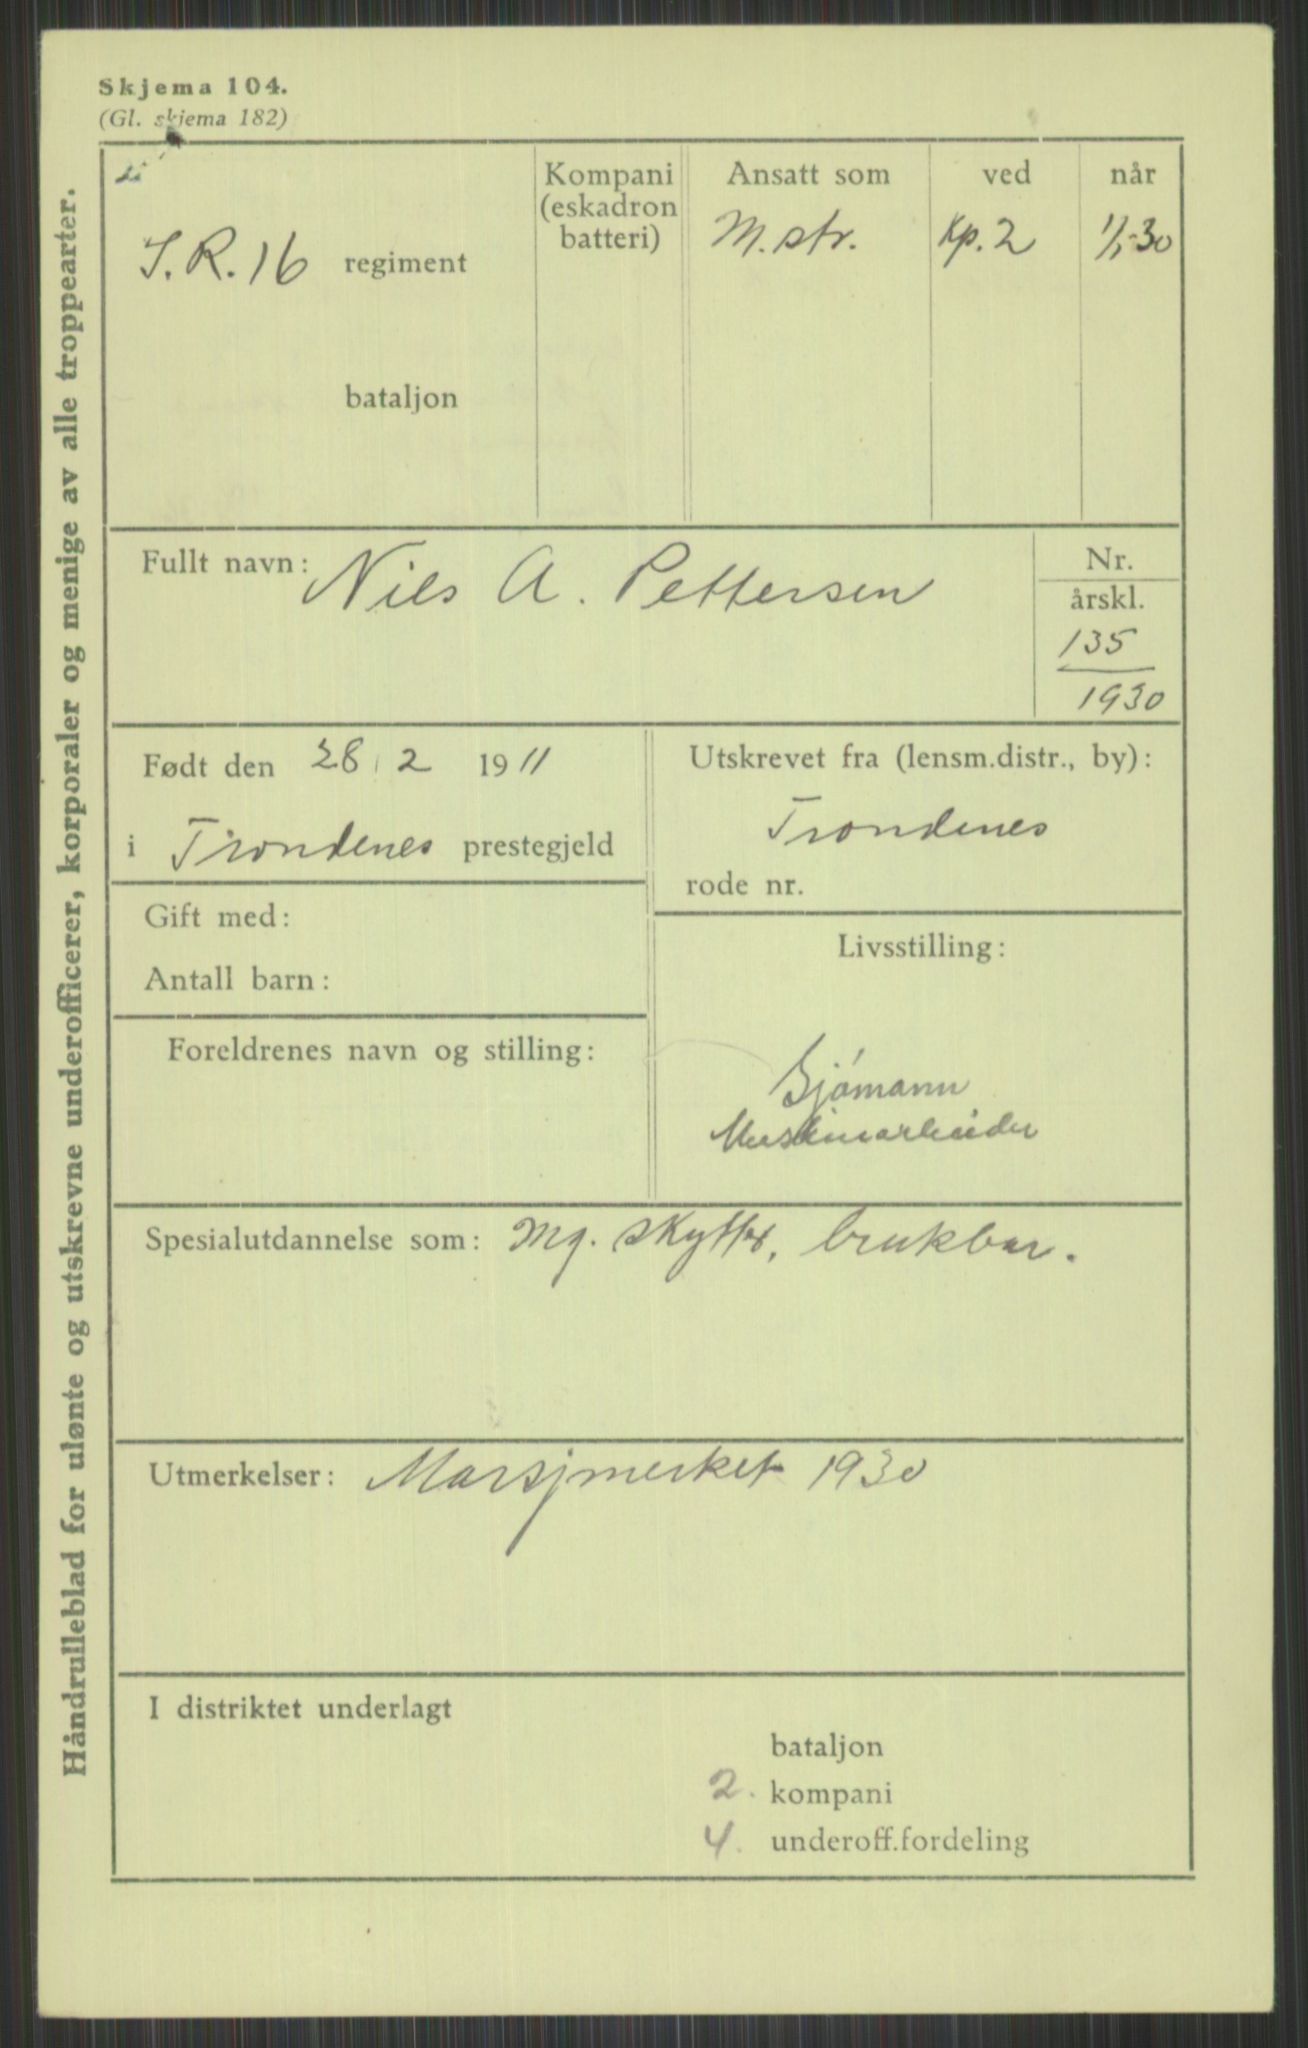 Skjema 104.
(Gl. skjema 182)
Håndrulleblad for ulønte og utskrevne underofficerer, korporaler og menige av alle troppearter.
I. R. 16 regiment
bataljon
Kompani
(eskadron
batteri)
Ansatt som
M. str.
ved
Kp. 2
når
1/1-30
Fullt navn: Nils A. Pettersen
Nr.
årskl.
135
1930
Født den 28/2 1911
i Trondenes prestegjeld
Utskrevet fra (lensm.distr., by):
Trondenes
rode nr.
Gift med:
Antall barn:
Foreldrenes navn og stilling:
Livsstilling:
Sjómann
Spesialutdannelse som: Mg. skytter, brukbar.
Utmerkelser: Marsjmerket 1930
I distriktet underlagt
bataljon
2. kompani
4. underoff.fordeling